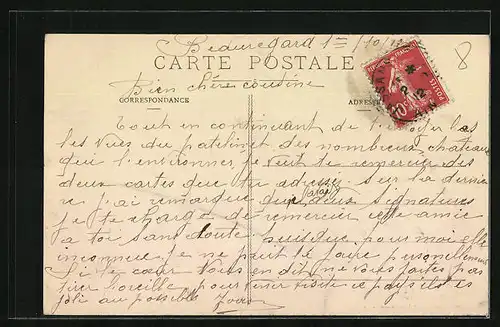 Beauregard 1er /10/
8
CARTE POSTALE
Bien chère cousine
CORRESPONDANCE
ADRES
Tout en continuant de t'envoyer
les vues du patelin et des nombreux chateaux
qui l'environnes je veut te remercier des
deux cartes que tu adresse. Sur la derniere
j'ai remarqué deux signatures
je te charge de remercier cette amie
a toi sans doute puisque pour moi elle
inconnue je ne peut le faire personellement
Si le cœur vous en dit ne vous faites pas
tirer l'oreille pour venir visiter ce pays il es
joli au possible